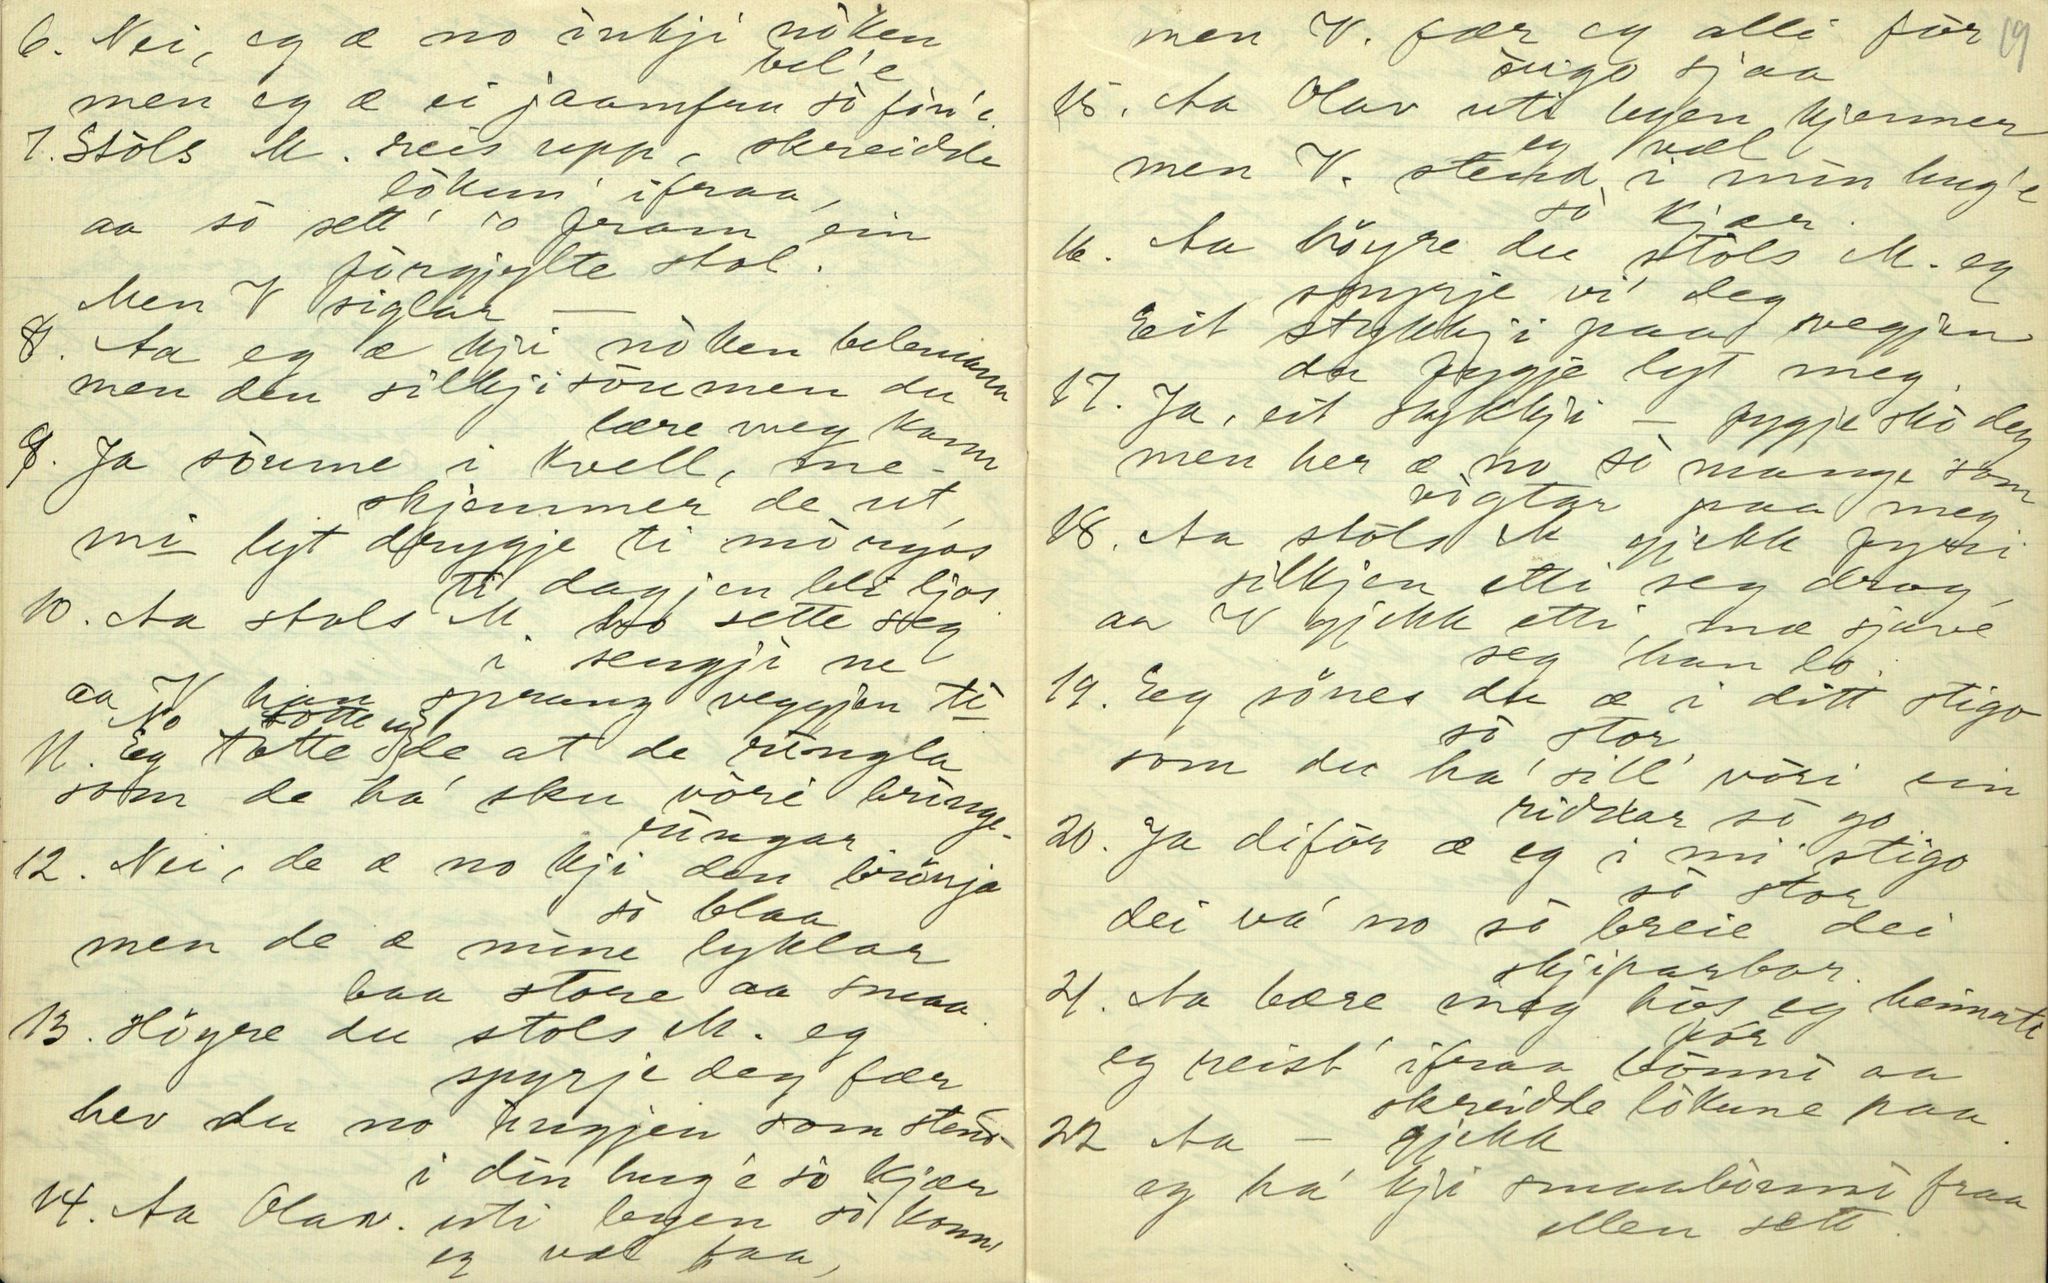 6. Nei, eg æ no inkji nöken
bel'e
men eg æ ei jaamfru sö fin'e.
7. Stöls M. reis upp, skreidde
lökun' ifraa,
aa sö sett' 'o fram ein
förgjylte stol.
Men V siglar —
8. Aa eg æ kji nöken belemann
men den silkjisöumen du
lære meg kann
9. Ja söume i kvell, me-
skjemmer de ut,
mi lyt drygje ti mörgos
ti dagjen bli ljos.
10. Aa stols M. ho sette seg
i sengji ne
aa V han sprang veggjen ti
No totte eg
11. Eg totte de at de ringla
som de ha' sku vöre bringe-
ringar
12. Nei, de æ no kji den brönja
sö blaa
men de æ mine lyklar
baa store aa smaa.
13. Höyre du stols M. eg
spyrje deg fær
hev du no ingjen som stend
i din hug'e sö kjær
14. Aa Olav. uti byen sö konn
eg væl faa,
19
men V. fær eg alli för
öugo sjaa
15. Aa Olav uti byen kjenner
eg væl
men V. stend i min hug'e
sö kjær.
16. Aa höyre du stöls M. eg
spyrje vi' deg
Eit stykkji paa vegjen
du fygje lyt meg.
17. Ja, eit stykkji — fygje skö deg
men her æ no sö mange som
vigtar paa meg
18. Aa stöls M gjekk fyri
silkjen etti seg drog,
aa V gjekk etti, mæ sjave
seg han lo.
19. Eg sönes du æ i ditt stigo
sö stor
som du ha' sill' vöri ein
riddar sö go
20. Ja diför æ eg i mi stigo
sö stor
dei va' no sö breie dei
skjiparbor.
21. Aa bære meg hös eg heimate
för
eg reist' ifraa bönni aa
skreidde lökune paa.
22 Aa — gjekk
eg ha' kji smaabönni fraa
ellen sett.